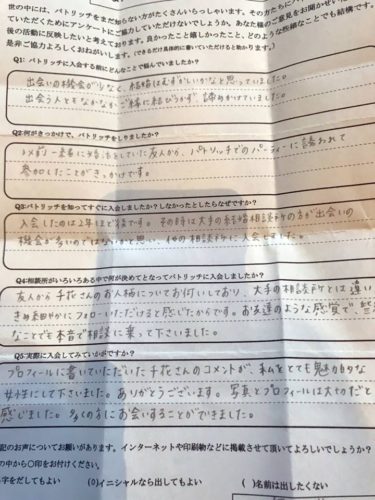 世の中には、パトリッチをまだ知らない方がたくさんいらっしゃいます。その方たちに
ていただくためにアンケートにご協力していただけないでしょうか。あなた様のご意見をお聞かせいた
後の活動に反映したいと考えております。良かったこと嬉しかったこと、どのような些細なことでも結構です。
是非ご協力よろしくおねがいします。(できるだけ具体的に書いていただけると助かります。)
Q1: パトリッチに入会する前にどんなことで悩んでいましたか?
出会いの機会が少なく、結婚はむずかしいかなと思っていました。
出会う人ともなかなかご縁に結びつかず、諦めかけていました。
Q2:何がきっかけで、パトリッチをしりましたか?
以前一緒に婚活をしていた友人から、パトリッチでのパーティーに誘われて
参加したことがきっかけです。
Q3:パトリッチを知ってすぐに入会しましたか?しなかったとしたらなぜですか?
入会したのは2年ほど後です。その時は大手の結婚相談所の方が出会いの
機会が多いのではないかと思い、他の相談所に入会しました。
Q4:相談所がいろいろある中で何が決めてとなってパトリッチに入会しましたか?
友人から千花さんのお人柄についてお伺いしており、大手の相談所とは違い
きめ細やかにフォローいただけると感じたからです。お友達のような感覚で、
なことでも本音で相談に乗って下さいました。
Q5:実際に入会してみていかがですか?
プロフィールに書いていただいた千花さんのコメントが、私をとても魅力的な
女性にして下さいました。ありがとうございます。写真とプロフィールは大切だと
感じました。多くの方にお会いすることができました。
記のお声についてお願いがあります。インターネットや印刷物などに掲載させて頂いてよろしいでしょうか?
の中から〇印をお付けください。
字をだしてもよい (0)イニシャルなら出してもよい ( )名前は出したくない